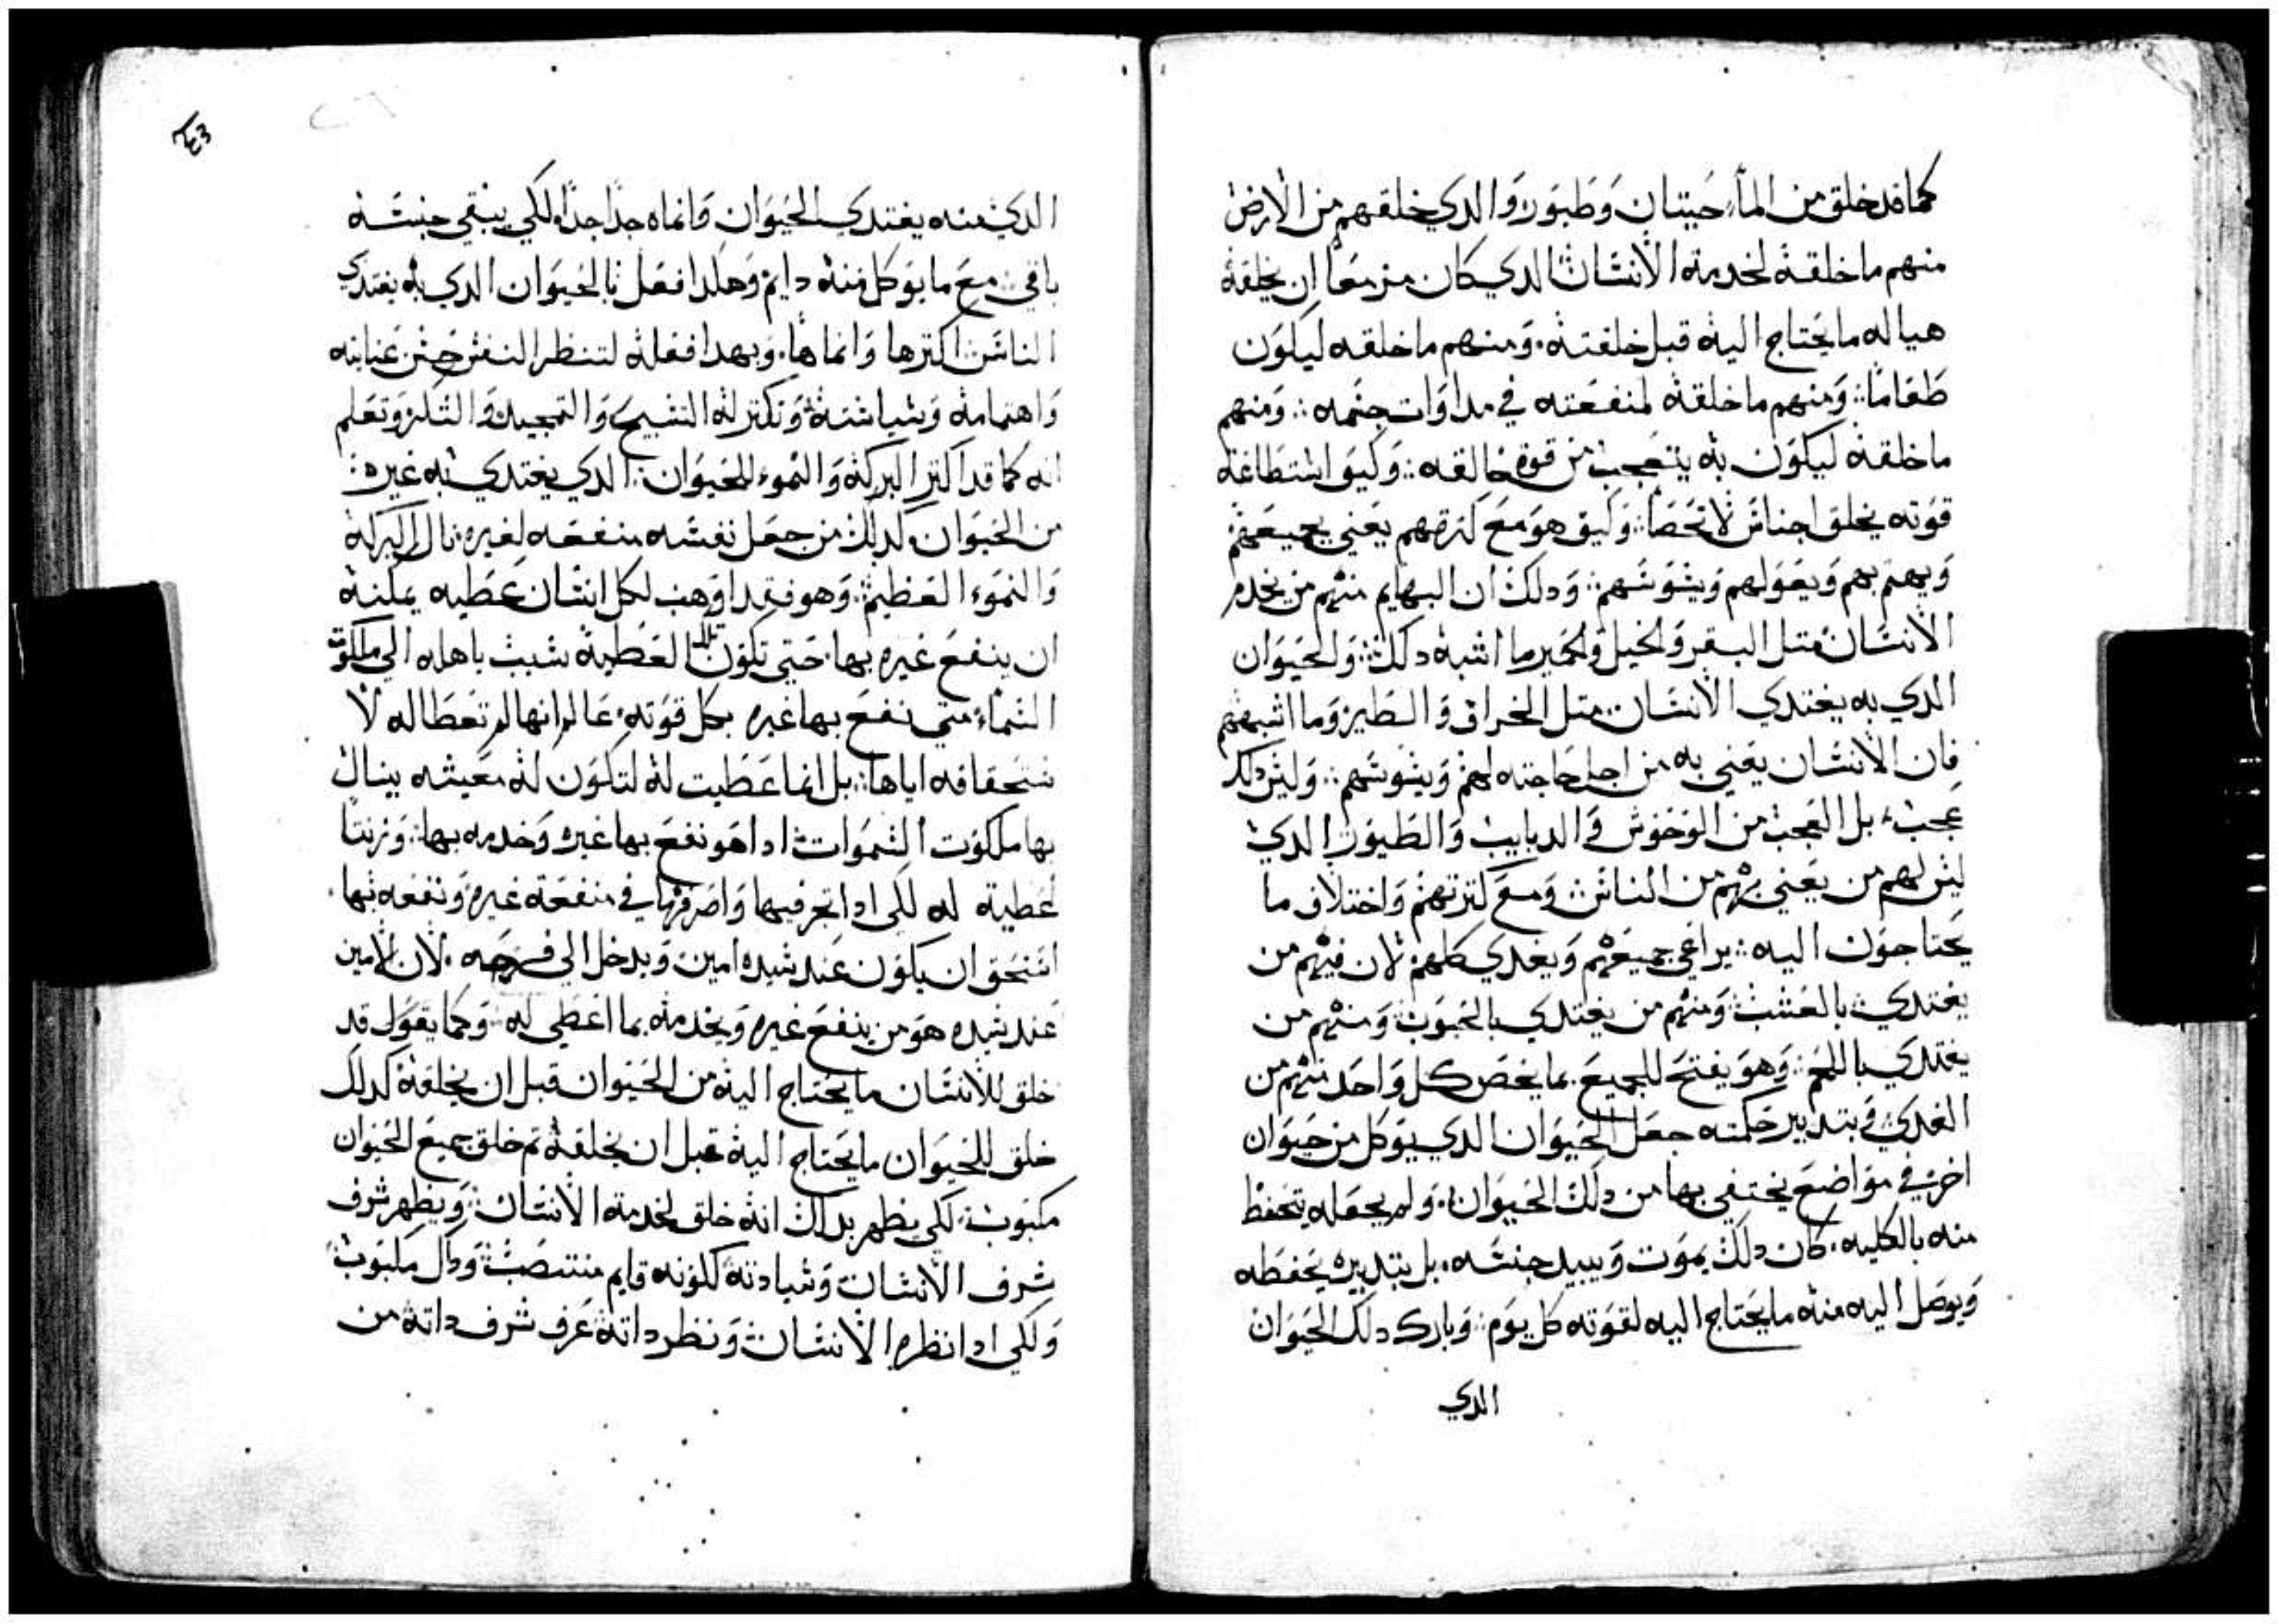 كما قد خلق من الماء حيتان وطيور والدي خلقهم من الارض
منهم ما خلقه لخدمة الانسان الدي كان مزمعا ان يخلقه
هيا له ما يحتاج اليه قبل خلقته. ومنهم ما خلقه ليكون
طعاما: ومنهم ما خلقه لمنفعته في مداوات جسمه: ومنهم
ما خلقه ليكون به يتعجب من قوة خالقه: وكيف استطاعة
قوته يخلق اجناس لا تحصا: وكيف هو مع كترتهم يعني بجميعهم
ويهتم بهم ويعولهم ويسوسهم: ودلك ان البهايم منهم من يخدم
الانسان متل البقر والخيل والحمير وما اشبه دلك: والحيوان
الدي به يغتدي الانسان متل الخراف والطير وما اشبههم
فان الانسان يعني به من اجل حاجته لهم ويسوسهم: وليس دلك
عجب، بل العجب من الوحوش والدبابيب والطيور الدي
ليس لهم من يعني بهم من الناس ومع كترتهم واختلاف ما
يحتاجون اليه: يراعي جميعهم ويغدي كلهم لان فيهم من
يغتدي بالعشب ومنهم من يغتدي بالحبوب ومنهم من
يغتدي باللحم: وهو يفتح للجميع بما يخص كل واحد منهم من
الغدي وبتدبير حكمته جعل الحيوان الدي يوكل من حيوان
اخر في مواضع يختفي بها من دلك الحيوان. ولم يجعله يتحفظ
منه بالكليه. كان دلك يموت ويبيد جنسه. بل بتدبيره يحفظه
ويوصل اليه منه ما يحتاج اليه لقوته كل يوم: وبارك دلك الحيوان
الدي
٤٣
الدي منه يغتدي الحيوان وانماه جدا جدا. لكي يبقي جنسه
باقي: مع ما يوكل منه دايم وهكدا فعل بالحيوان الدي به يغتدي
الناس: اكترها وانماها. وبهدا فعله لتنظر النفس حسن عنايته
واهتمامه وسياسته وتكتر له التسبيح والتمجيد والشكر وتعلم
انه كما قد اكتر البركه والنموء للحيوان: الدي يغتدي به غيره:
من الحيوان كدلك من جعل نفسه منفعه لغيره. نال البركه
والنموء العظيم: وهو فقد اوهب لكل انسان عطيه يمكنه
ان ينفع غيره بها. حتي تكون تلك العطية سبب باهله الي ملكوت
السماء متي نفع بها غيره بكل قوته. عالم انها لم تعطا له لا
ستحقاقه اياها: بل انما عطيت له لتكون له معيشه ينال
بها ملكوت السموات ادا هو نفع بها غيره وخدمه بها: وزنتا
عطية له لكي ادا تجر فيها واصرفها في منفعة غيره ونفعه بها.
استحق ان يكون عند سيده امين ويدخل الي فرحه. لان الامين
عند سيده هو من ينفع غيره ويخدمه بما اعطي له: وكما يقول قد
خلق للانسان ما يحتاج اليه من الحيوان قبل ان يخلقه كدلك
خلق للحيوان ما يحتاج اليه قبل ان يخلقه تم خلق جميع الحيوان
مكبوب: لكي يظهر بدلك انه خلق لخدمة الانسان: ويظهر شرف
شرف الانسان وسيادته لكونه قايم منتصب: وداك مكبوب
ولكي ادا نظره الانسان ونظر داته عرف شرف داته من